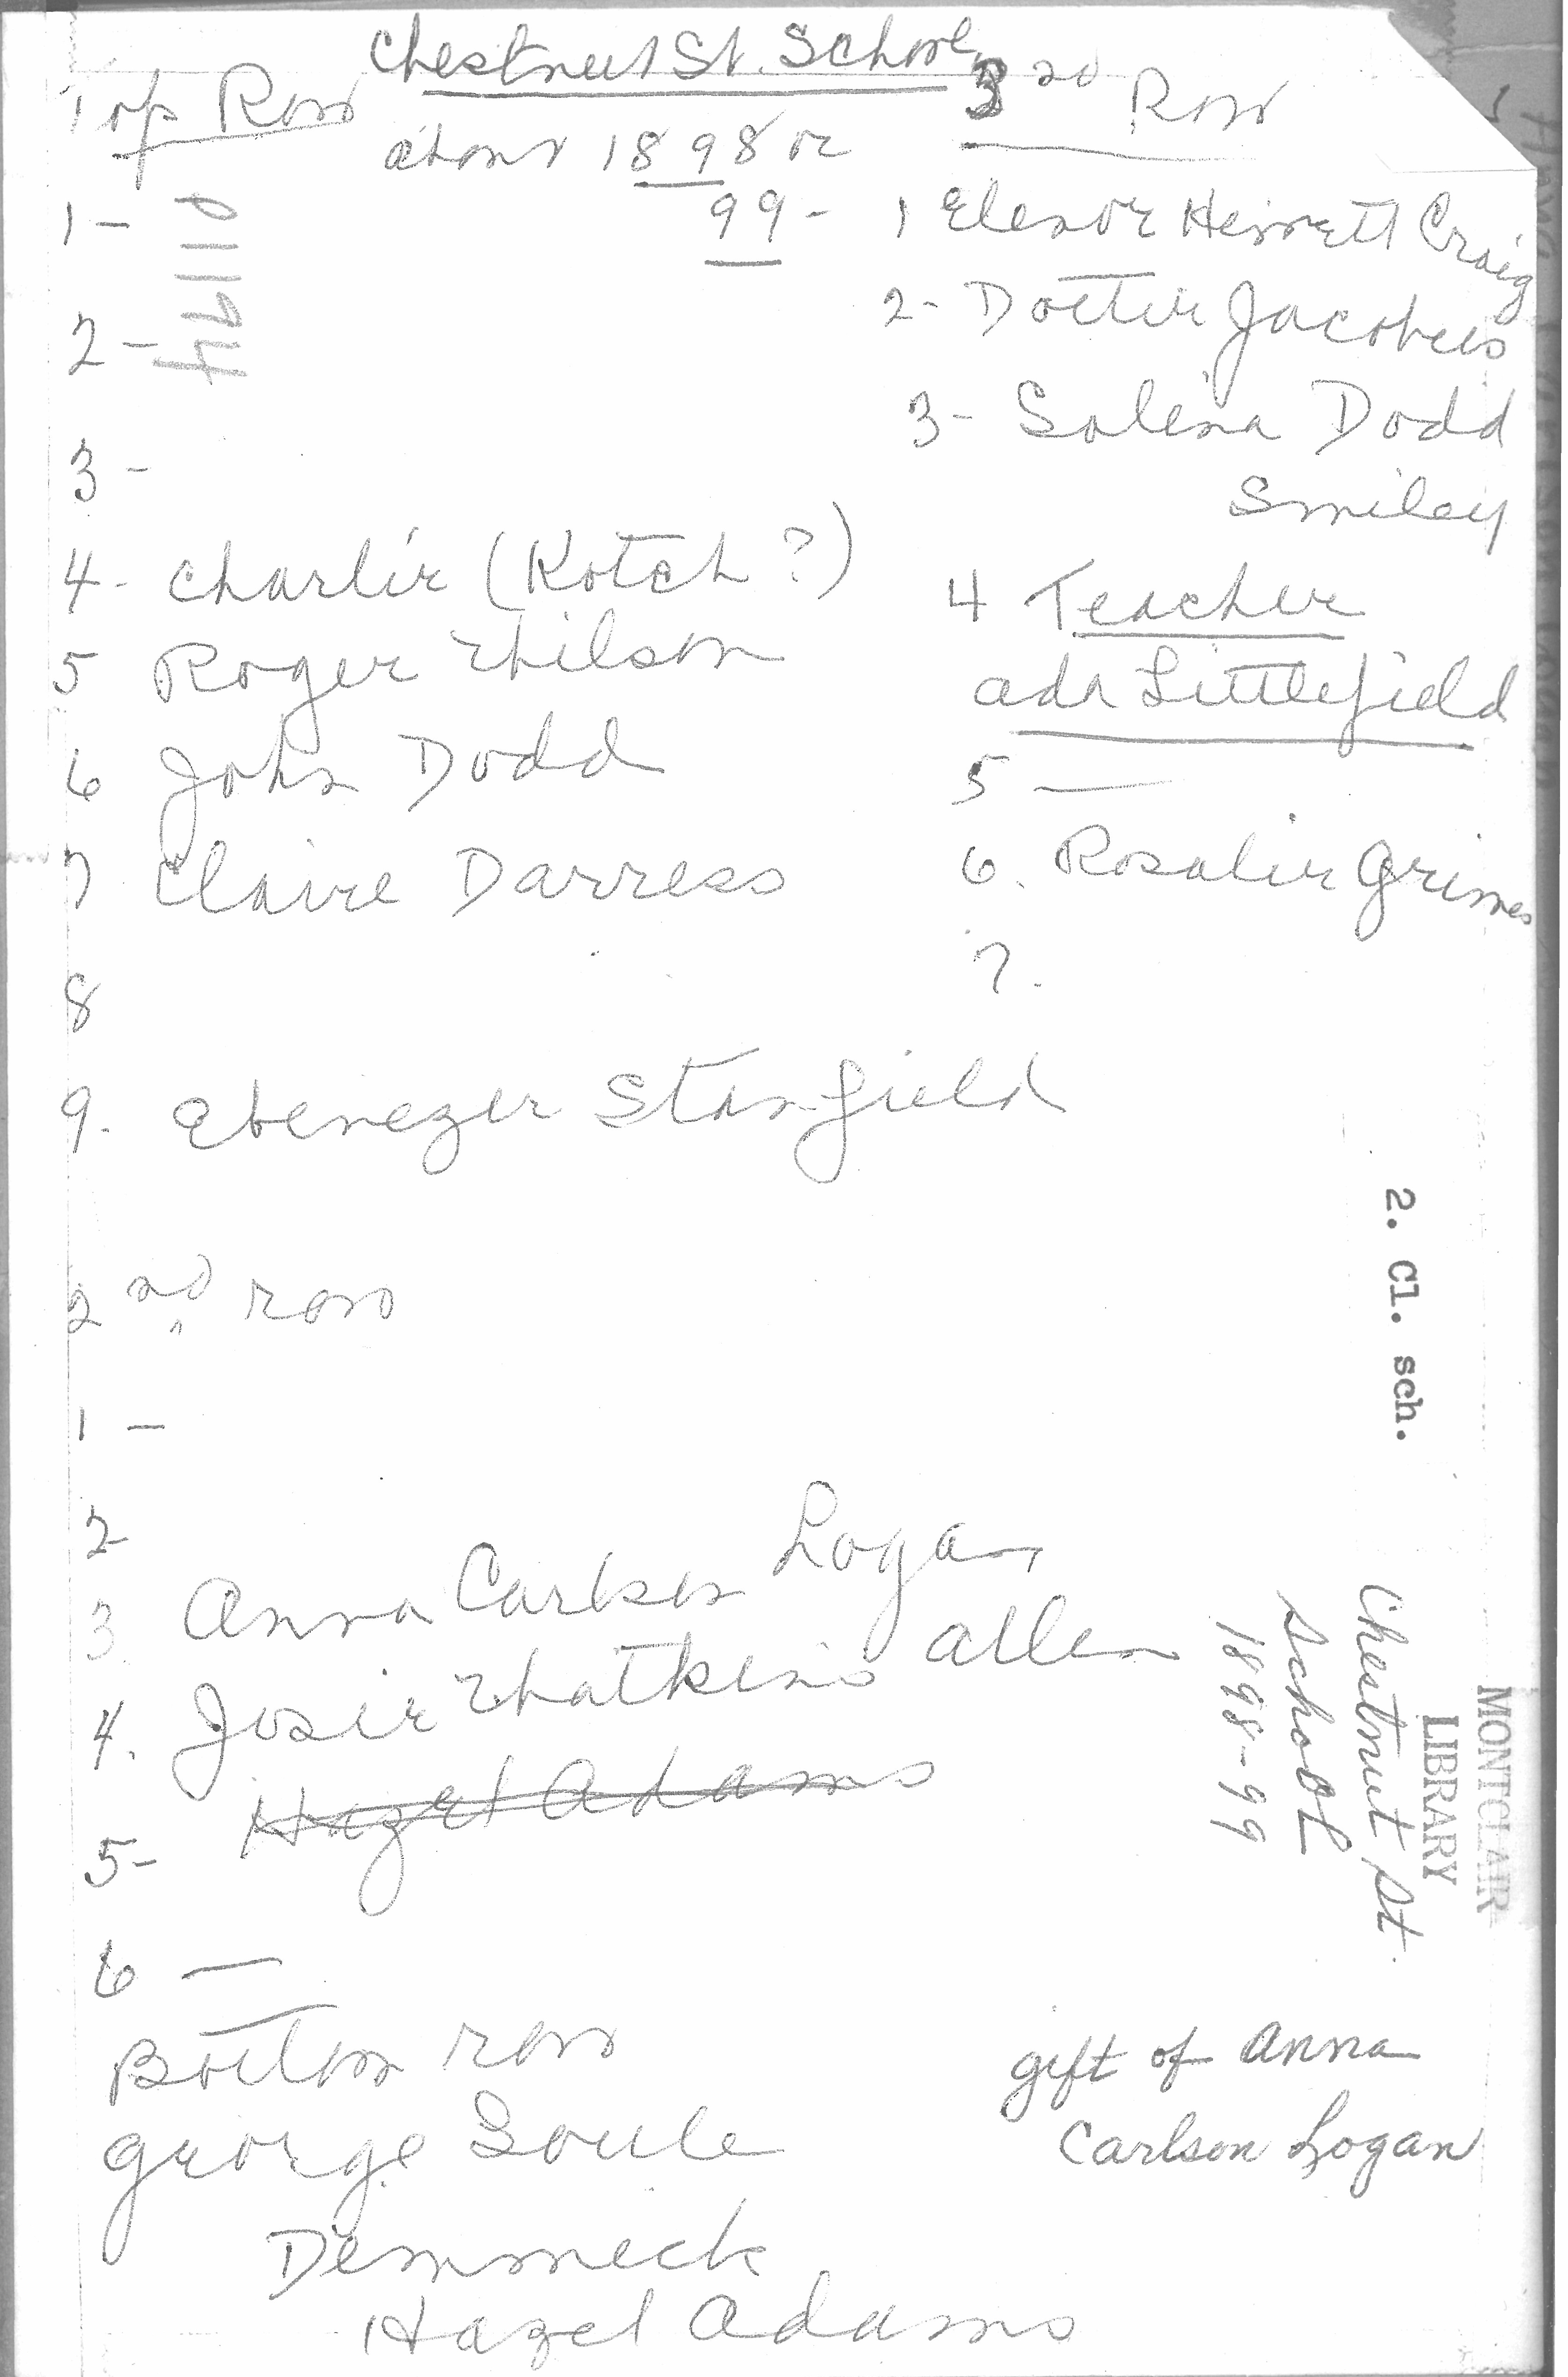 Chestnut St. School
about 1898 or
99-
Top Row
1-
2-
3-
4- Charlie (Kotch?)
5 Roger Wilson
6 John Dodd
7 Claire Darress
8
9. Ebenezer Stanfield
2nd row
1 -
2
3 Anna Carlson Logan
4. Josie Watkins Allen
Hazel Adams
5-
6 —
Bottom row
George Soule
Dimmick
Hazel Adams
3rd Row
1 Elenor Hewett Craig
2- Dottie Jacobus
3- Salena Dodd
Smiley
4 Teacher
Ada Littlefield
5 —
6. Rosalie Grimes
7.
2. Cl. sch.
Chestnut St.
School
1898-99
MONTCLAIR
LIBRARY
gift of Anna
Carlson Logan